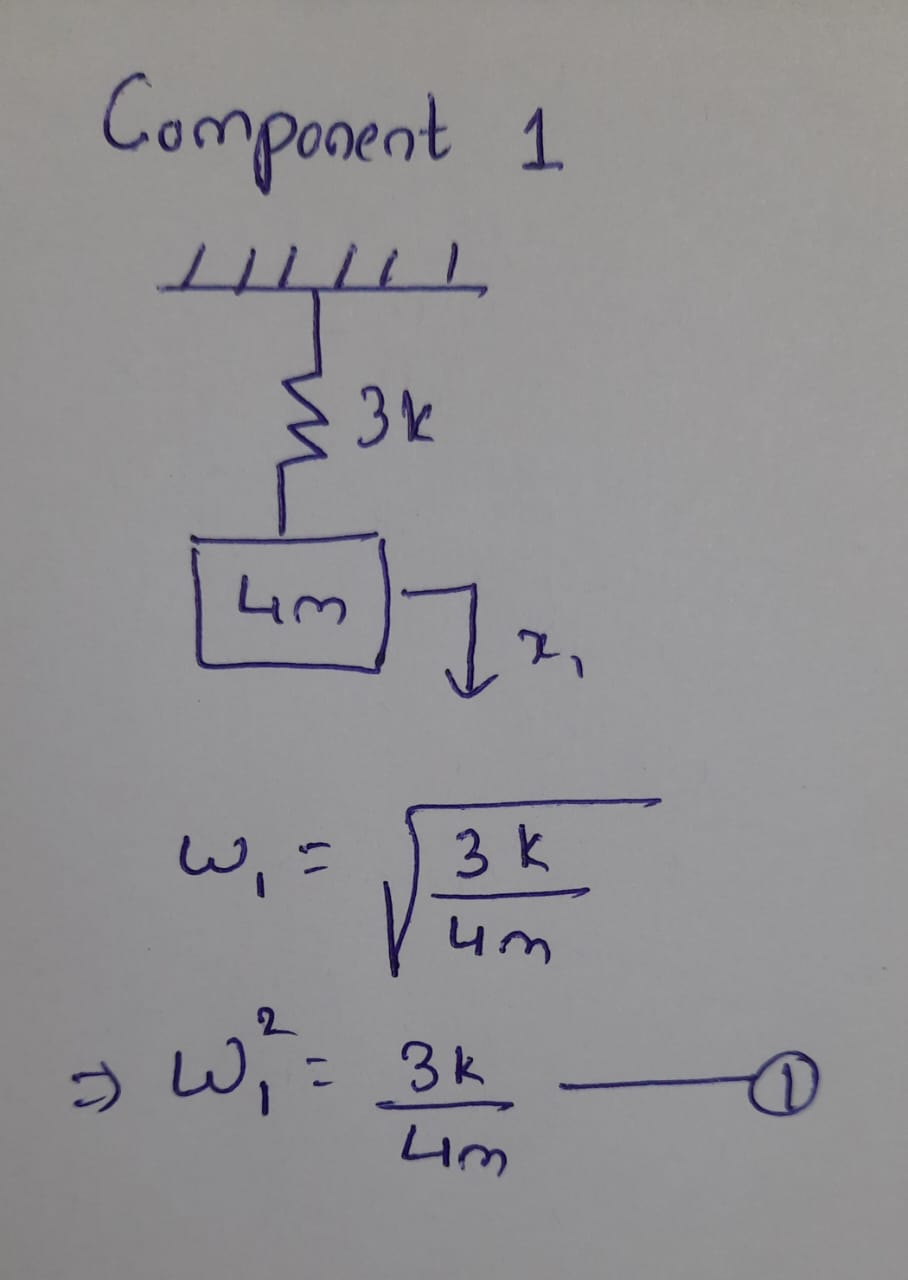 Component 1
3k
4m
x₁
ω₁ = √(3k/4m)
⇒ ω₁² = 3k/4m —— ①